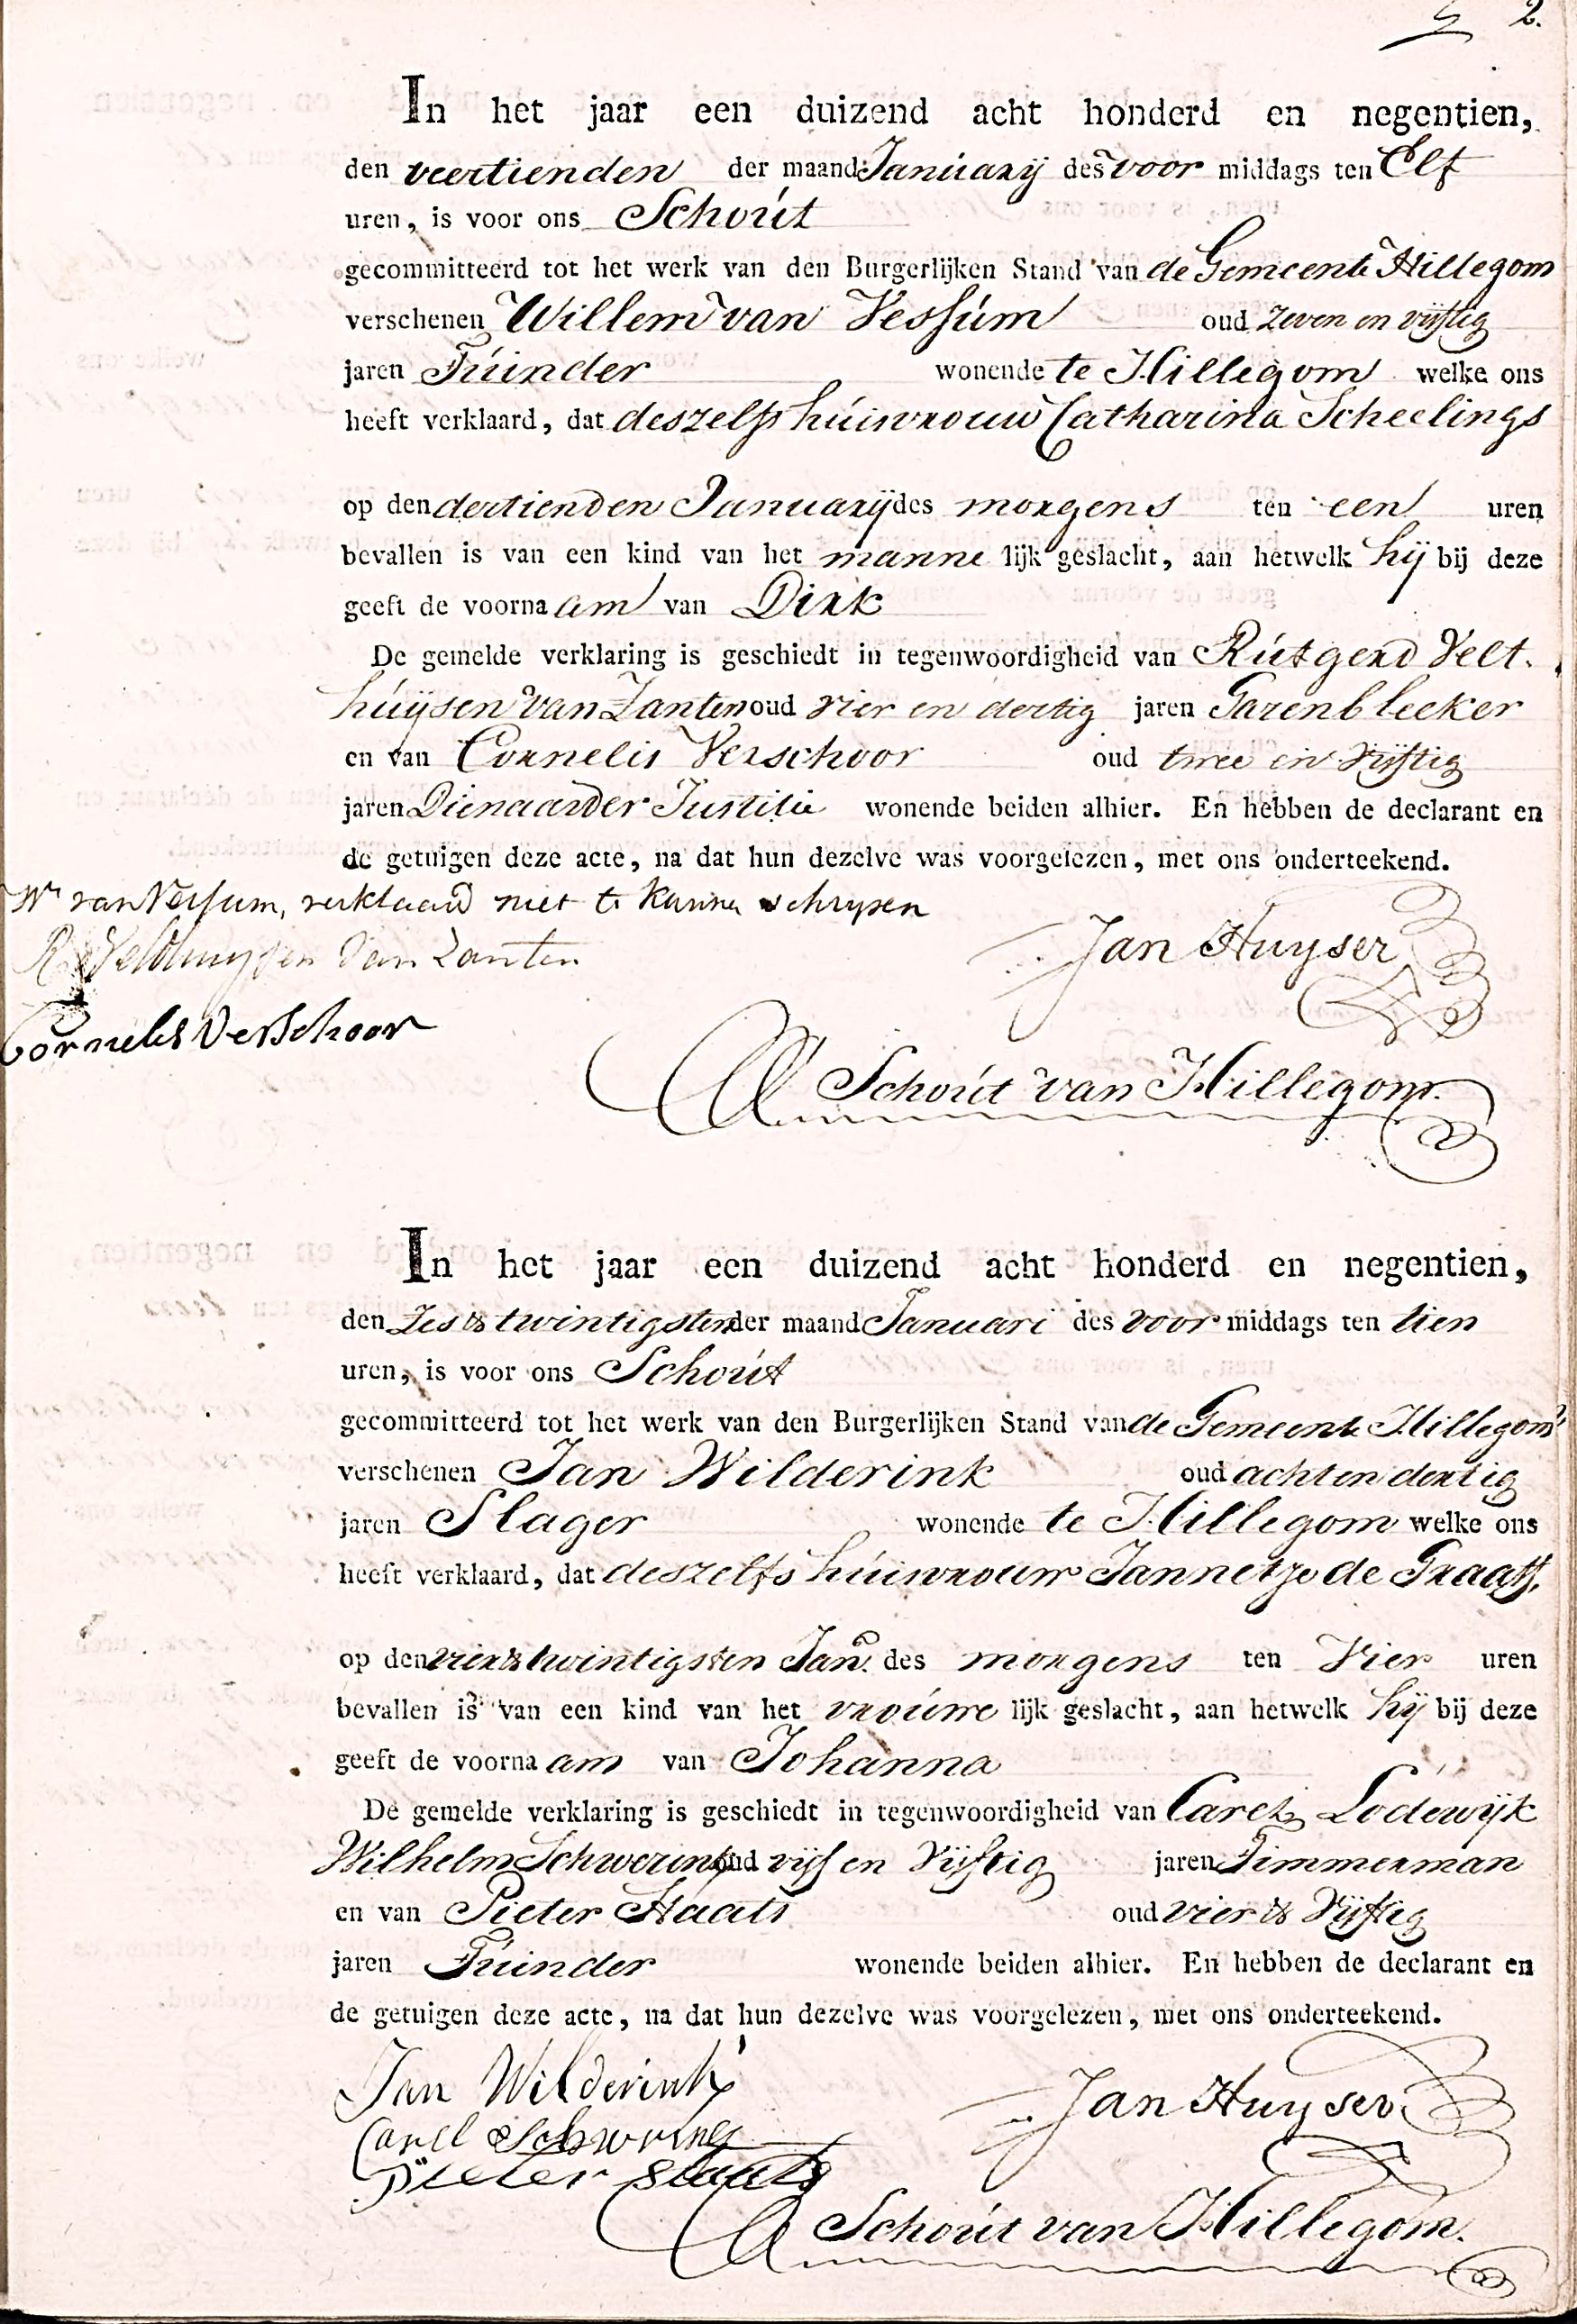 2.
In het jaar een duizend acht honderd en negentien,
den veertienden der maand Januarij des voor middags ten Elf
uren, is voor ons Schout
gecommitteerd tot het werk van den Burgerlijken Stand van de Gemeente Hillegom
verschenen Willem van Vessúm oud zeven en vijftig
jaren Túinder wonende te Hillegom welke ons
heeft verklaard, dat deszelfs húisvrouw Catharina Scheelings
op den dertienden Januarij des morgens ten een uren
bevallen is van een kind van het manne lijk geslacht, aan hetwelk hij bij deze
geeft de voorna am van Dirk
De gemelde verklaring is geschiedt in tegenwoordigheid van Rútgerd Velt.
húijsen van Zanten oud vier en dertig jaren Garenbleeker
en van Cornelis Verschoor oud twee en vijftig
jaren Dienaar der Justitie wonende beiden alhier. En hebben de declarant en
de getuigen deze acte, na dat hun dezelve was voorgelezen, met ons onderteekend.
Wm van Vessum, verklaard niet te kunnen schryven
R Veldhuysen van Zanten Jan Huyser
Cornelis Verschoor
Schout van Hillegom.
In het jaar een duizend acht honderd en negentien,
den zes & twintigsten der maand Januari des voor middags ten tien
uren, is voor ons Schout
gecommitteerd tot het werk van den Burgerlijken Stand van de Gemeente Hillegom
verschenen Jan Wilderink oud acht en dertig
jaren Slager wonende te Hillegom welke ons
heeft verklaard, dat deszelfs húisvrouw Jannetje de Graaff,
op den vier & twintigsten Jan. des morgens ten Vier uren
bevallen is van een kind van het vrouwe lijk geslacht, aan hetwelk hij bij deze
geeft de voorna am van Johanna
De gemelde verklaring is geschiedt in tegenwoordigheid van Carel Lodewijk
Wilhelm Schwering oud vijf en Vijftig jaren Timmerman
en van Pieter Staats oud vier & Vijftig
jaren Túinder wonende beiden alhier. En hebben de declarant en
de getuigen deze acte, na dat hun dezelve was voorgelezen, met ons onderteekend.
Jan Wilderink Jan Huyser
Carel Schwring
Pieter Staats
Schout van Hillegom.